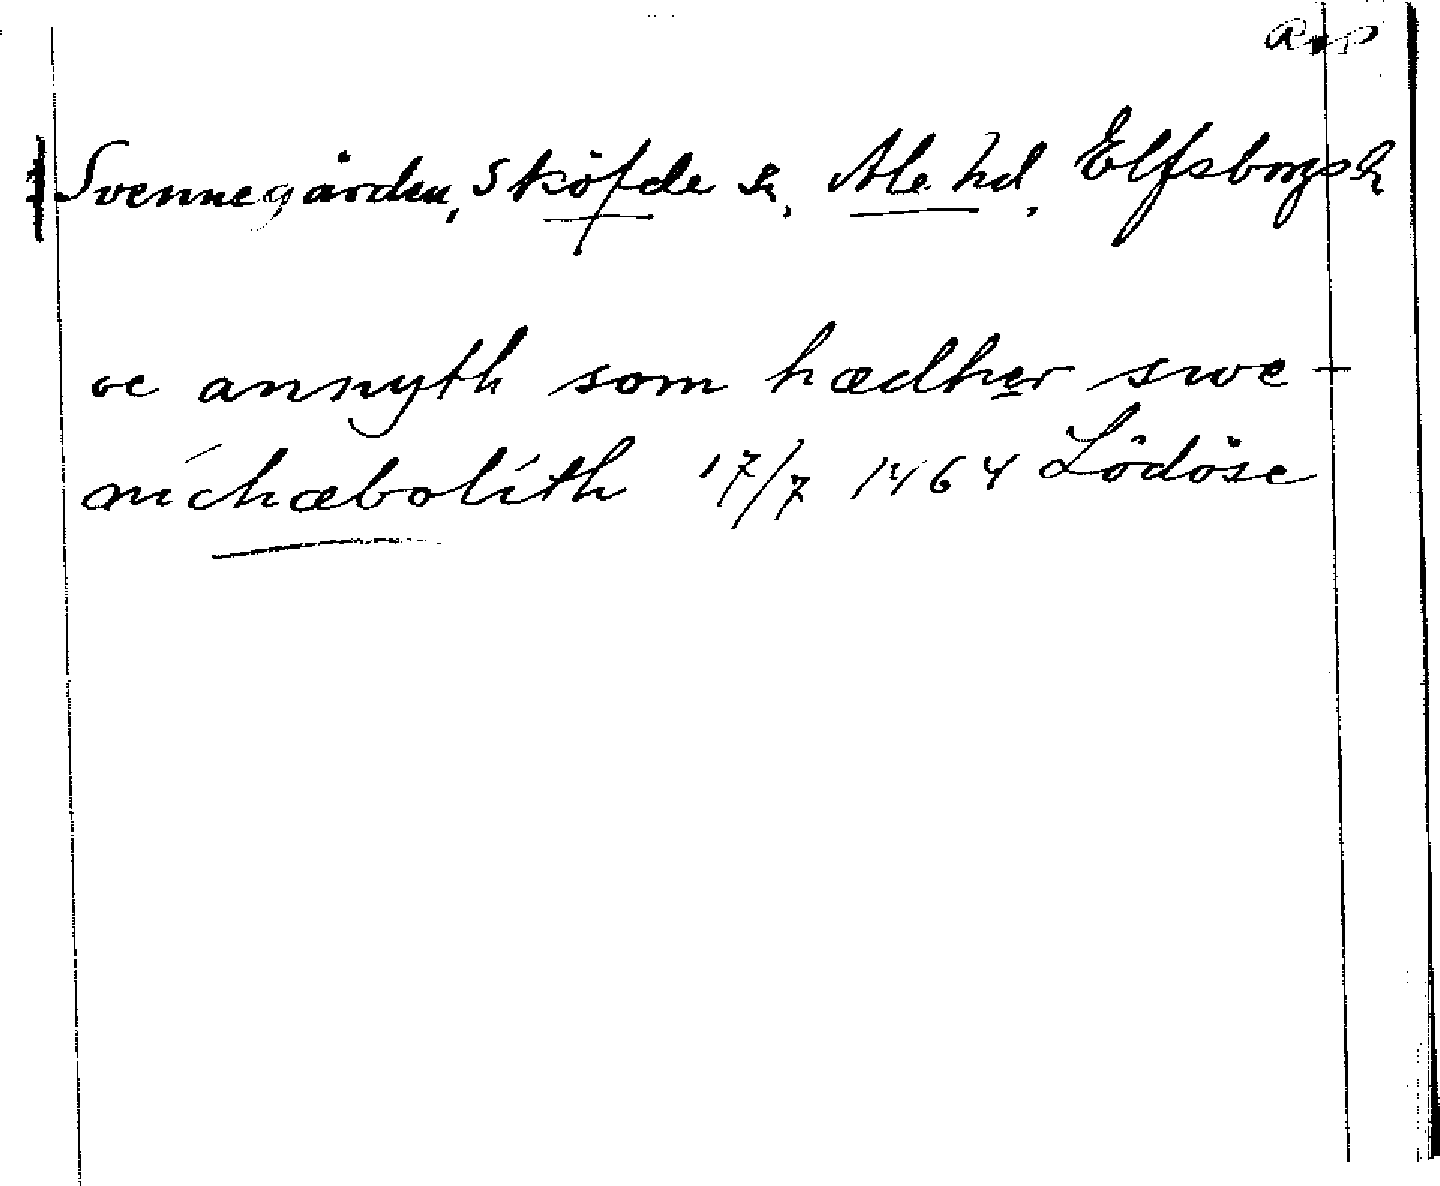 Rap
Svennegården, Sköfde sn, Ale hd, Elfsborgs l
oc annyth som hædher swe-
nichæbolith 17/7 1464 Lödöse